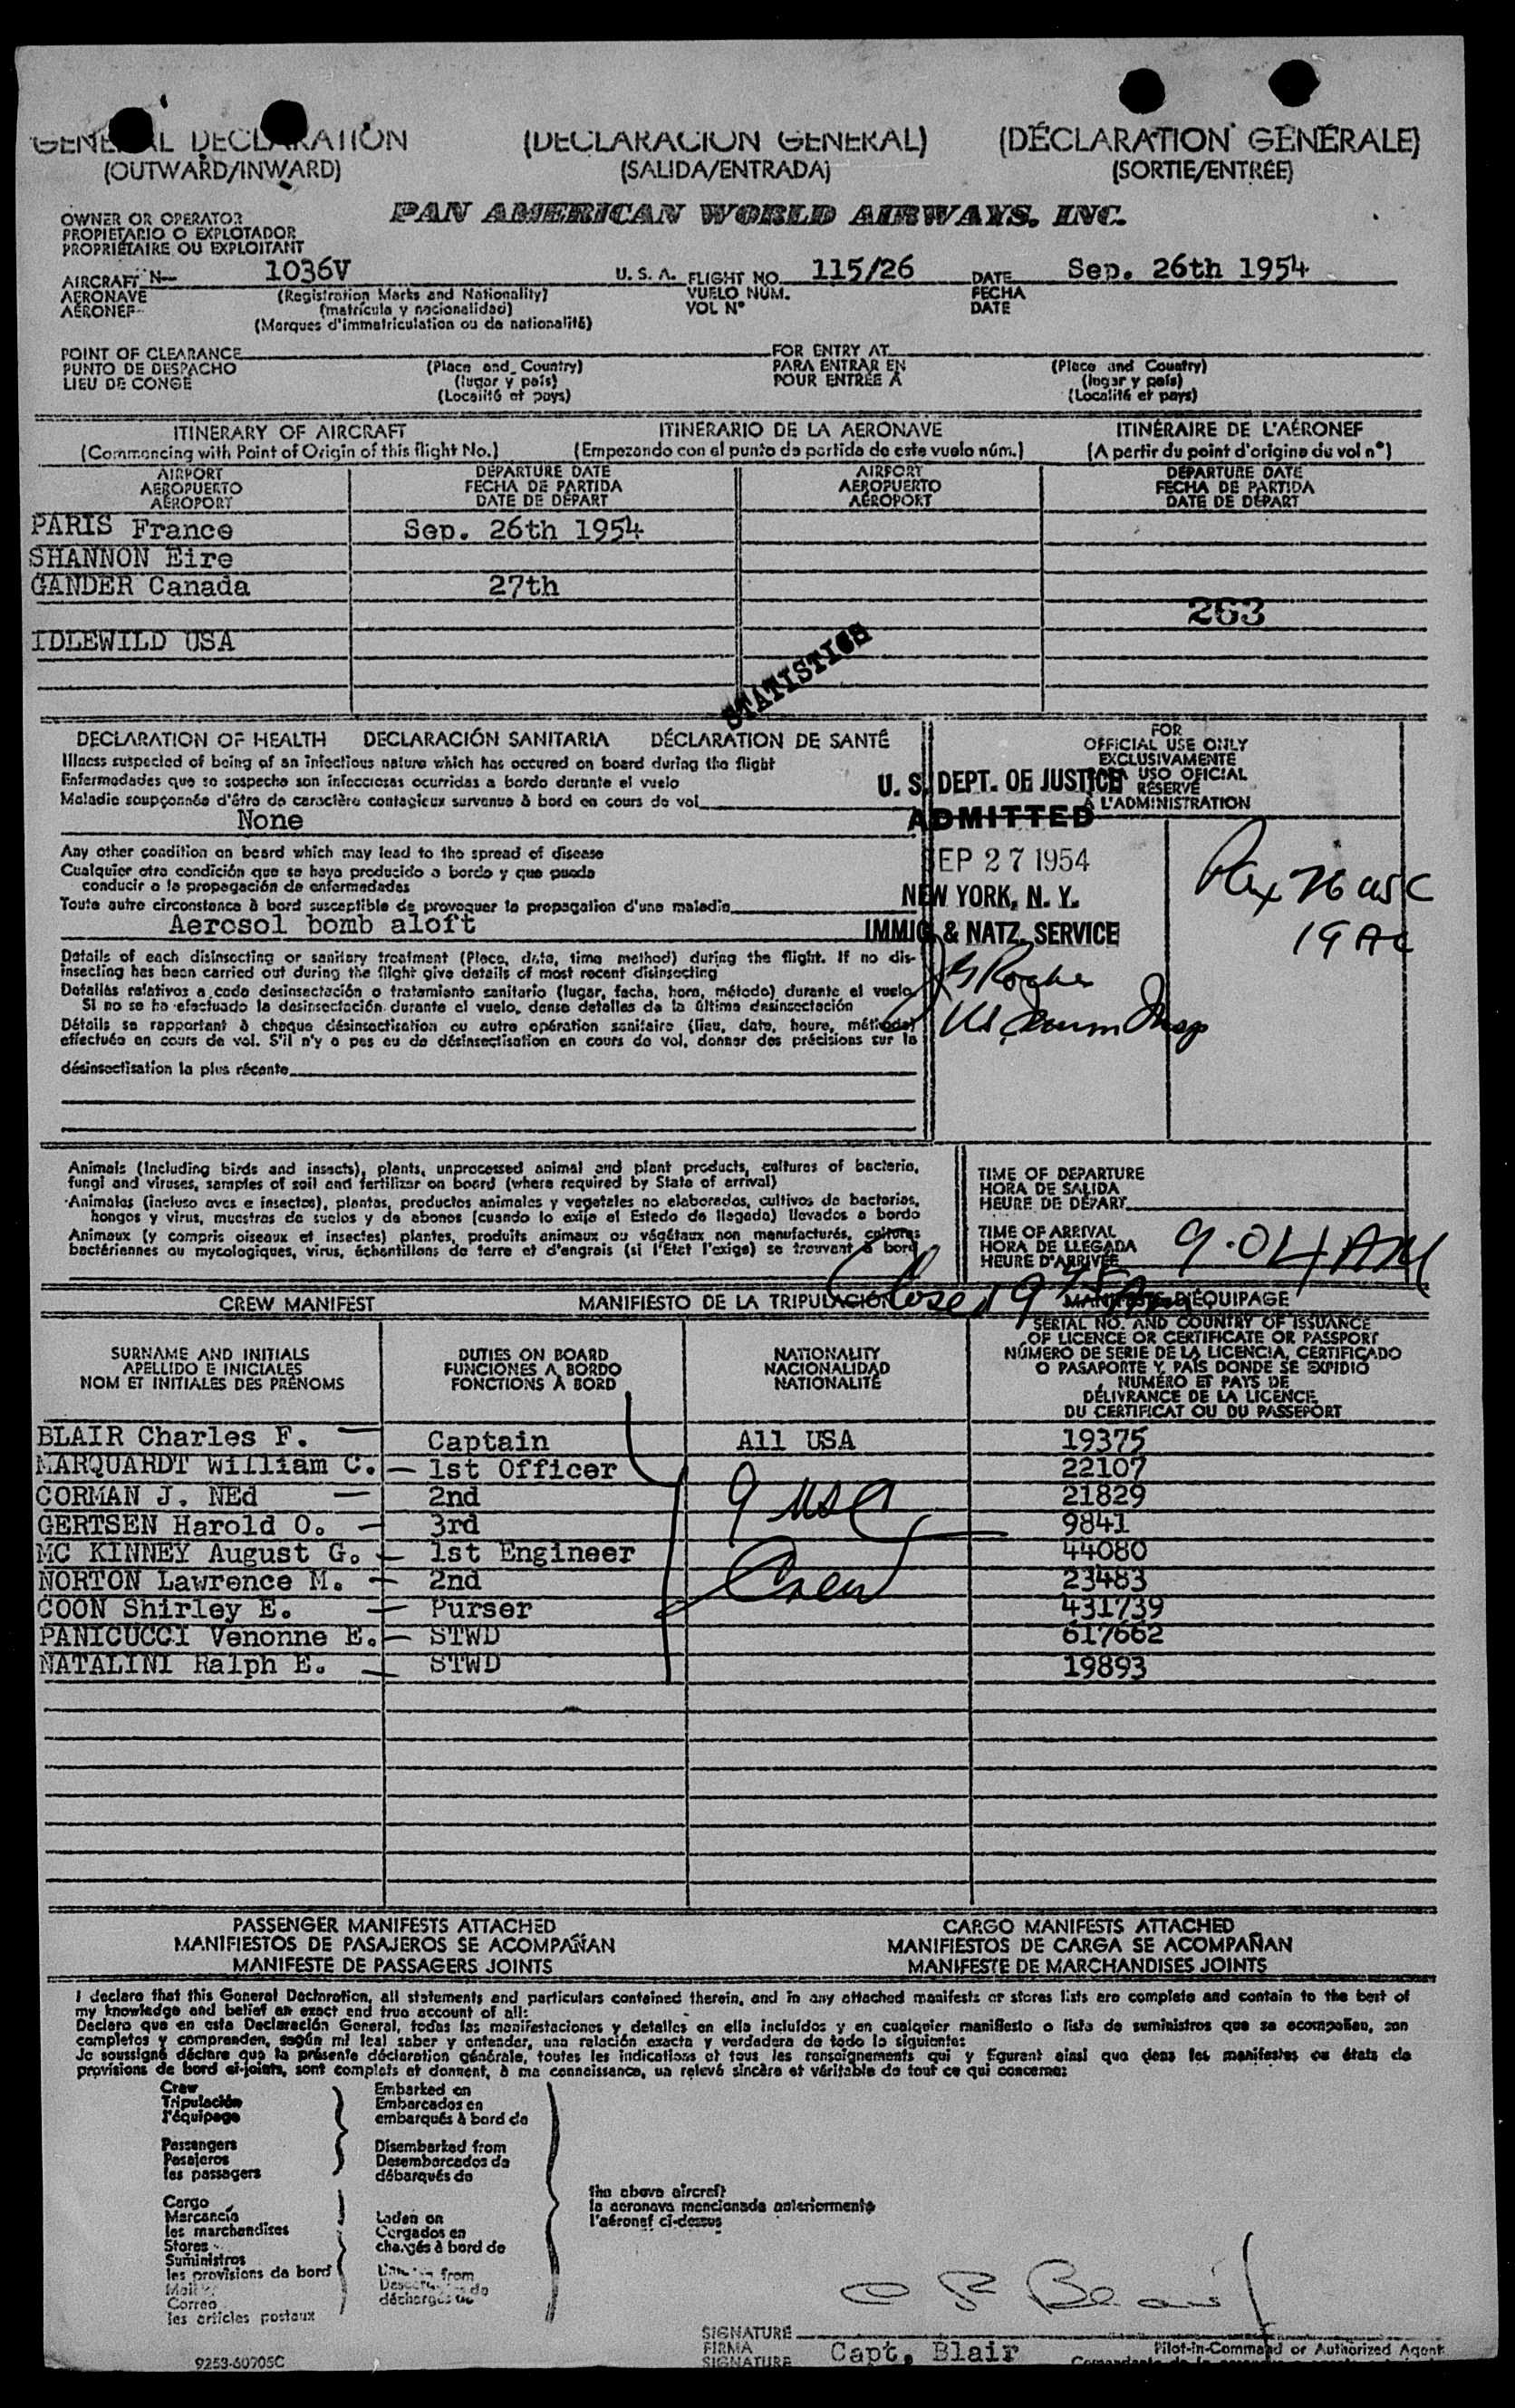 GENERAL DECLARATION (DECLARACION GENERAL) (DÉCLARATION GÉNÉRALE)
(OUTWARD/INWARD) (SALIDA/ENTRADA) (SORTIE/ENTRÉE)
PAN AMERICAN WORLD AIRWAYS, INC.
OWNER OR OPERATOR
PROPIETARIO O EXPLOTADOR
PROPRIÉTAIRE OU EXPLOITANT
AIRCRAFT N— 1036V U. S. A. FLIGHT NO. 115/26 DATE Sep. 26th 1954
AERONAVE (Registration Marks and Nationality) VUELO NÚM. FECHA
AÉRONEF (matrícula y nacionalidad) VOL N° DATE
(Marques d'immatriculation ou de nationalité)
POINT OF CLEARANCE FOR ENTRY AT
PUNTO DE DESPACHO (Place and Country) PARA ENTRAR EN (Place and Country)
LIEU DE CONGÉ (lugar y país) POUR ENTRÉE À (lugar y país)
(Localité et pays) (Localité et pays)
ITINERARY OF AIRCRAFT ITINERARIO DE LA AERONAVE ITINÉRAIRE DE L'AÉRONEF
(Commencing with Point of Origin of this flight No.) (Empezando con el punto de partida de este vuelo núm.) (A partir du point d'origine du vol n°)
AIRPORT DEPARTURE DATE AIRPORT DEPARTURE DATE
AEROPUERTO FECHA DE PARTIDA AEROPUERTO FECHA DE PARTIDA
AÉROPORT DATE DE DÉPART AÉROPORT DATE DE DÉPART
PARIS France Sep. 26th 1954
SHANNON Eire
GANDER Canada 27th
263
IDLEWILD USA
STATISTICS
DECLARATION OF HEALTH DECLARACIÓN SANITARIA DÉCLARATION DE SANTÉ
FOR
OFFICIAL USE ONLY
EXCLUSIVAMENTE
USO OFICIAL
RÉSERVÉ
À L'ADMINISTRATION
Illness suspected of being of an infectious nature which has occured on board during the flight
Enfermedades que se sospecha son infecciosas ocurridas a bordo durante el vuelo
Maladie soupçonnée d'être de caractère contagieux survenue à bord en cours de vol
None
U. S. DEPT. OF JUSTICE
ADMITTED
SEP 27 1954
NEW YORK, N. Y.
IMMIG. & NATZ. SERVICE
19 AC
Any other condition on board which may lead to the spread of disease
Cualquier otra condición que se haya producido a bordo y que pueda
conducir a la propagación de enfermedades
Toute autre circonstance à bord susceptible de provoquer la propagation d'une maladie
Aerosol bomb aloft
Details of each disinsecting or sanitary treatment (Place, date, time method) during the flight. If no dis-
insecting has been carried out during the flight give details of most recent disinsecting
Detalles relativos a cada desinsectación o tratamiento sanitario (lugar, fecha, hora, método) durante el vuelo.
Si no se ha efectuado la desinsectación durante el vuelo, dense detalles de la última desinsectación
Détails se rapportant à chaque désinsectisation ou autre opération sanitaire (lieu, date, heure, méthode)
effectuée en cours de vol. S'il n'y a pas eu de désinsectisation en cours de vol, donner des précisions sur la
désinsectisation la plus récente
Animals (including birds and insects), plants, unprocessed animal and plant products, cultures of bacteria,
fungi and viruses, samples of soil and fertilizer on board (where required by State of arrival)
Animales (incluso aves e insectos), plantas, productos animales y vegetales no elaborados, cultivos de bacterias,
hongos y virus, muestras de suelos y de abonos (cuando lo exija el Estado de llegada) llevados a bordo
Animaux (y compris oiseaux et insectes) plantes, produits animaux ou végétaux non manufacturés, cultures
bactériennes ou mycologiques, virus, échantillons de terre et d'engrais (si l'Etat l'exige) se trouvant à bord
TIME OF DEPARTURE
HORA DE SALIDA
HEURE DE DÉPART
TIME OF ARRIVAL
HORA DE LLEGADA 9·04 AM
HEURE D'ARRIVÉE
Closed 9 45 Am
CREW MANIFEST MANIFIESTO DE LA TRIPULACIÓN MANIFESTE D'ÉQUIPAGE
SURNAME AND INITIALS DUTIES ON BOARD NATIONALITY
APELLIDO E INICIALES FUNCIONES A BORDO NACIONALIDAD
NOM ET INITIALES DES PRÉNOMS FONCTIONS À BORD NATIONALITÉ
SERIAL NO. AND COUNTRY OF ISSUANCE
OF LICENCE OR CERTIFICATE OR PASSPORT
NÚMERO DE SERIE DE LA LICENCIA, CERTIFICADO
O PASAPORTE Y PAÍS DONDE SE EXPIDIÓ
NUMÉRO ET PAYS DE
DÉLIVRANCE DE LA LICENCE,
DU CERTIFICAT OU DU PASSEPORT
BLAIR Charles F. — Captain All USA 19375
MARQUARDT William C. — 1st Officer 22107
CORMAN J. NEd — 2nd 21829
GERTSEN Harold O. — 3rd 9841
MC KINNEY August G. — 1st Engineer 44080
NORTON Lawrence M. — 2nd 23483
COON Shirley E. — Purser 431739
PANICUCCI Venonne E. — STWD 617662
NATALINI Ralph E. — STWD 19893
9 USC
Crew
PASSENGER MANIFESTS ATTACHED CARGO MANIFESTS ATTACHED
MANIFIESTOS DE PASAJEROS SE ACOMPAÑAN MANIFIESTOS DE CARGA SE ACOMPAÑAN
MANIFESTE DE PASSAGERS JOINTS MANIFESTE DE MARCHANDISES JOINTS
I declare that this General Declaration, all statements and particulars contained therein, and in any attached manifests or stores lists are complete and contain to the best of
my knowledge and belief an exact and true account of all:
Declaro que en esta Declaración General, todas las manifestaciones y detalles en ella incluídos y en cualquier manifiesto o lista de suministros que se acompañan, son
completos y comprenden, según mi leal saber y entender, una relación exacta y verdadera de todo lo siguiente:
Je soussigné déclare que la présente déclaration générale, toutes les indications et tous les renseignements qui y figurent ainsi que dans les manifestes ou états de
provisions de bord ci-joints, sont complets et donnent, à ma connaissance, un relevé sincère et véritable de tout ce qui concerne:
Crew Embarked on
Tripulación Embarcados en
l'équipage embarqués à bord de
Passengers Disembarked from
Pasajeros Desembarcados de
les passagers débarqués de
the above aircraft
la aeronave mencionada anteriormente
l'aéronef ci-dessus
Cargo
Mercancía Laden on
les marchandises Cargados en
Stores chargés à bord de
Suministros
les provisions de bord from
Mail de
Correo déchargés de
les articles postaux
C F Blair
SIGNATURE
FIRMA Capt. Blair Pilot-in-Command or Authorized Agent
SIGNATURE
9253-60705C